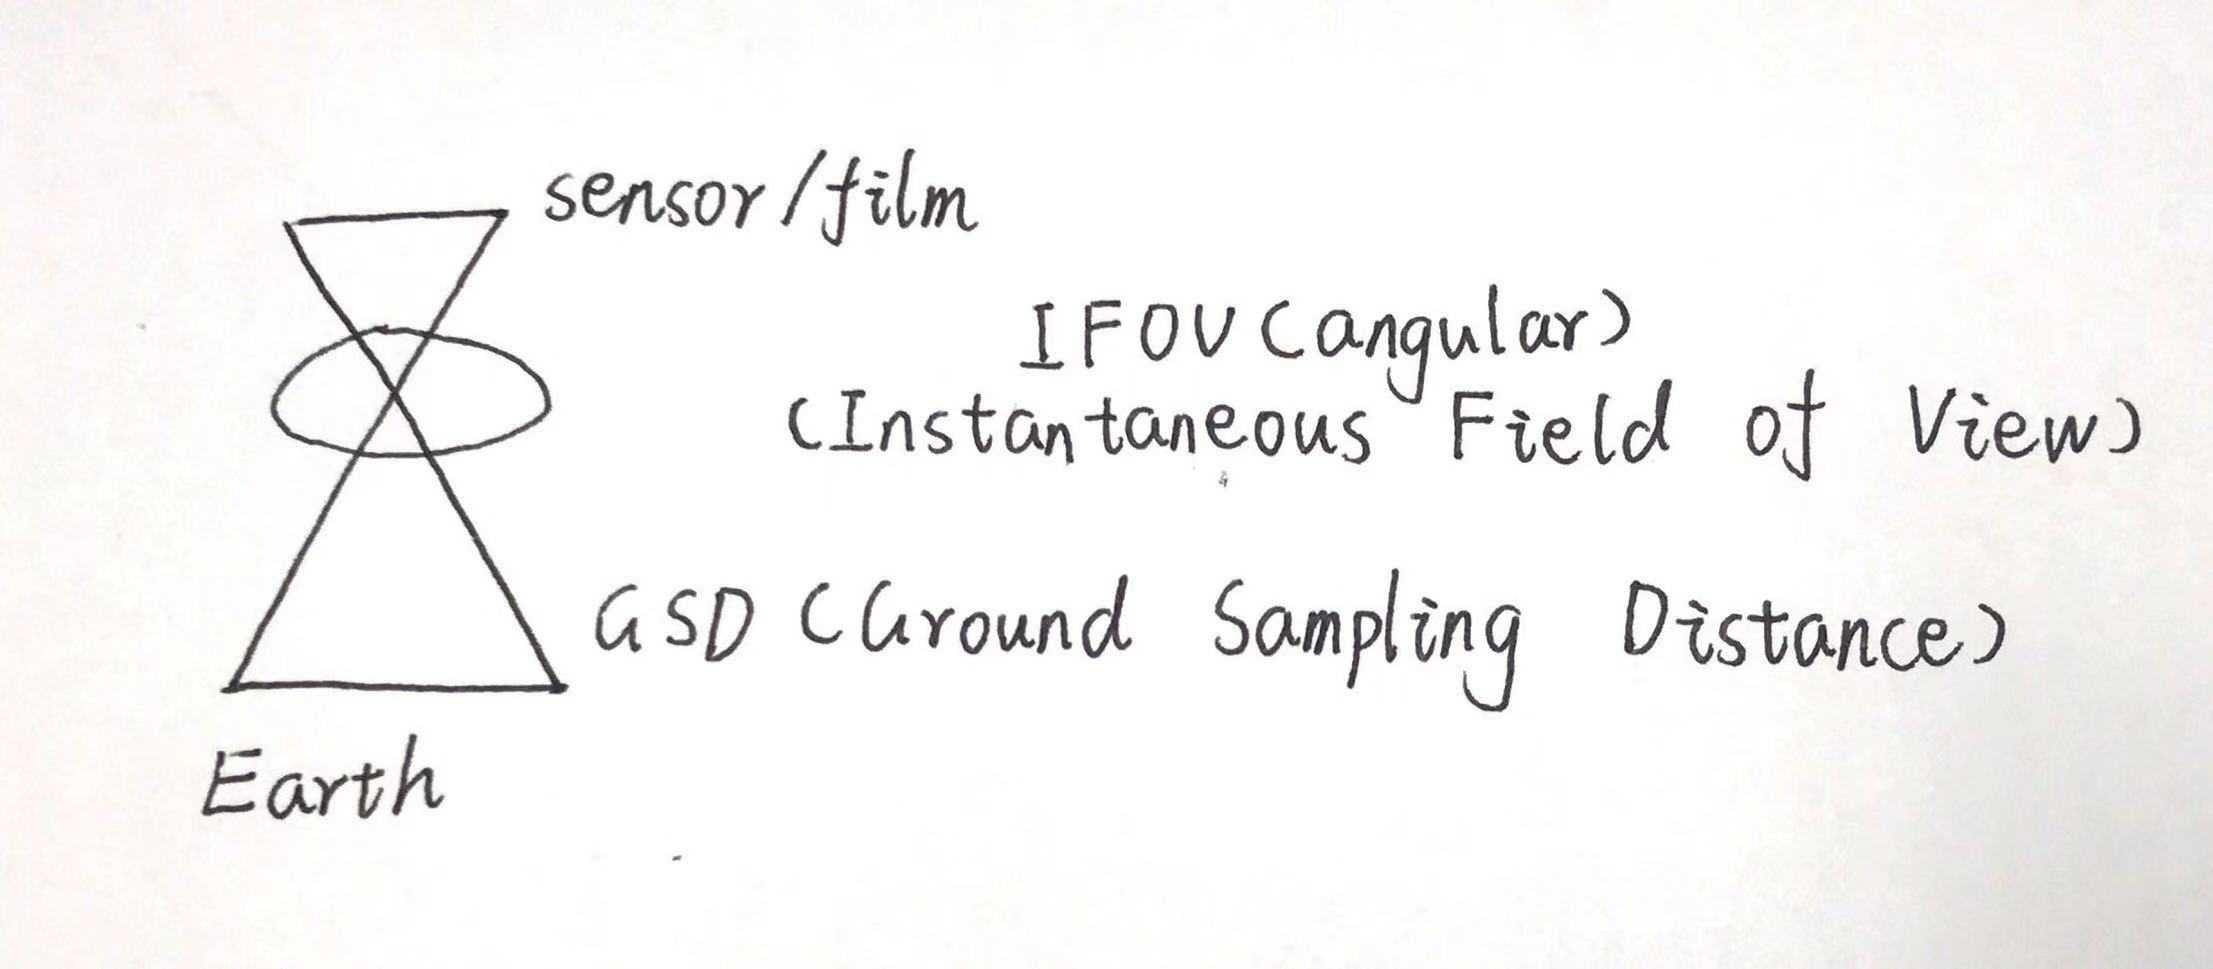 sensor/film
IFOV (angular)
(Instantaneous Field of View)
GSD (Ground Sampling Distance)
Earth